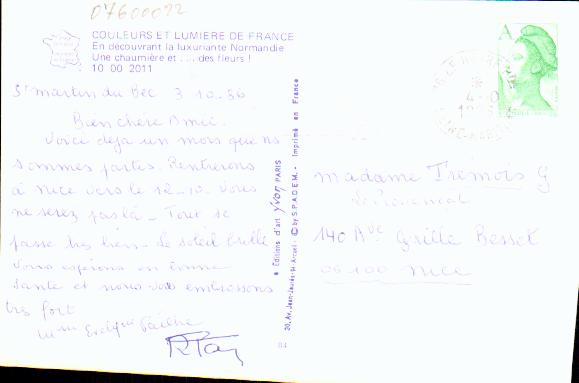 07600022
COULEURS ET LUMIERE DE FRANCE
En découvrant la luxuriante Normandie
Une chaumière et .... des fleurs !
10 00 2011
St martin du Bec 3.10.86
Bien chère Amie.
Voici déjà un mois que ns
sommes parties. Rentrerons
à Nice vers le 12-10. Vous
ne serez pas là - Tout se
passe très bien. Le soleil brille
Vous espérons en bonne
santé et nous vous embrassons
très fort
Editions d'art yvon PARIS
20, Av. Jean-Jaurès-94-Arcueil - © by S.P.A.D.E.M. - Imprimé en France
A
madame Tremois G
Le Provencal
140 Ave
06100 Nice